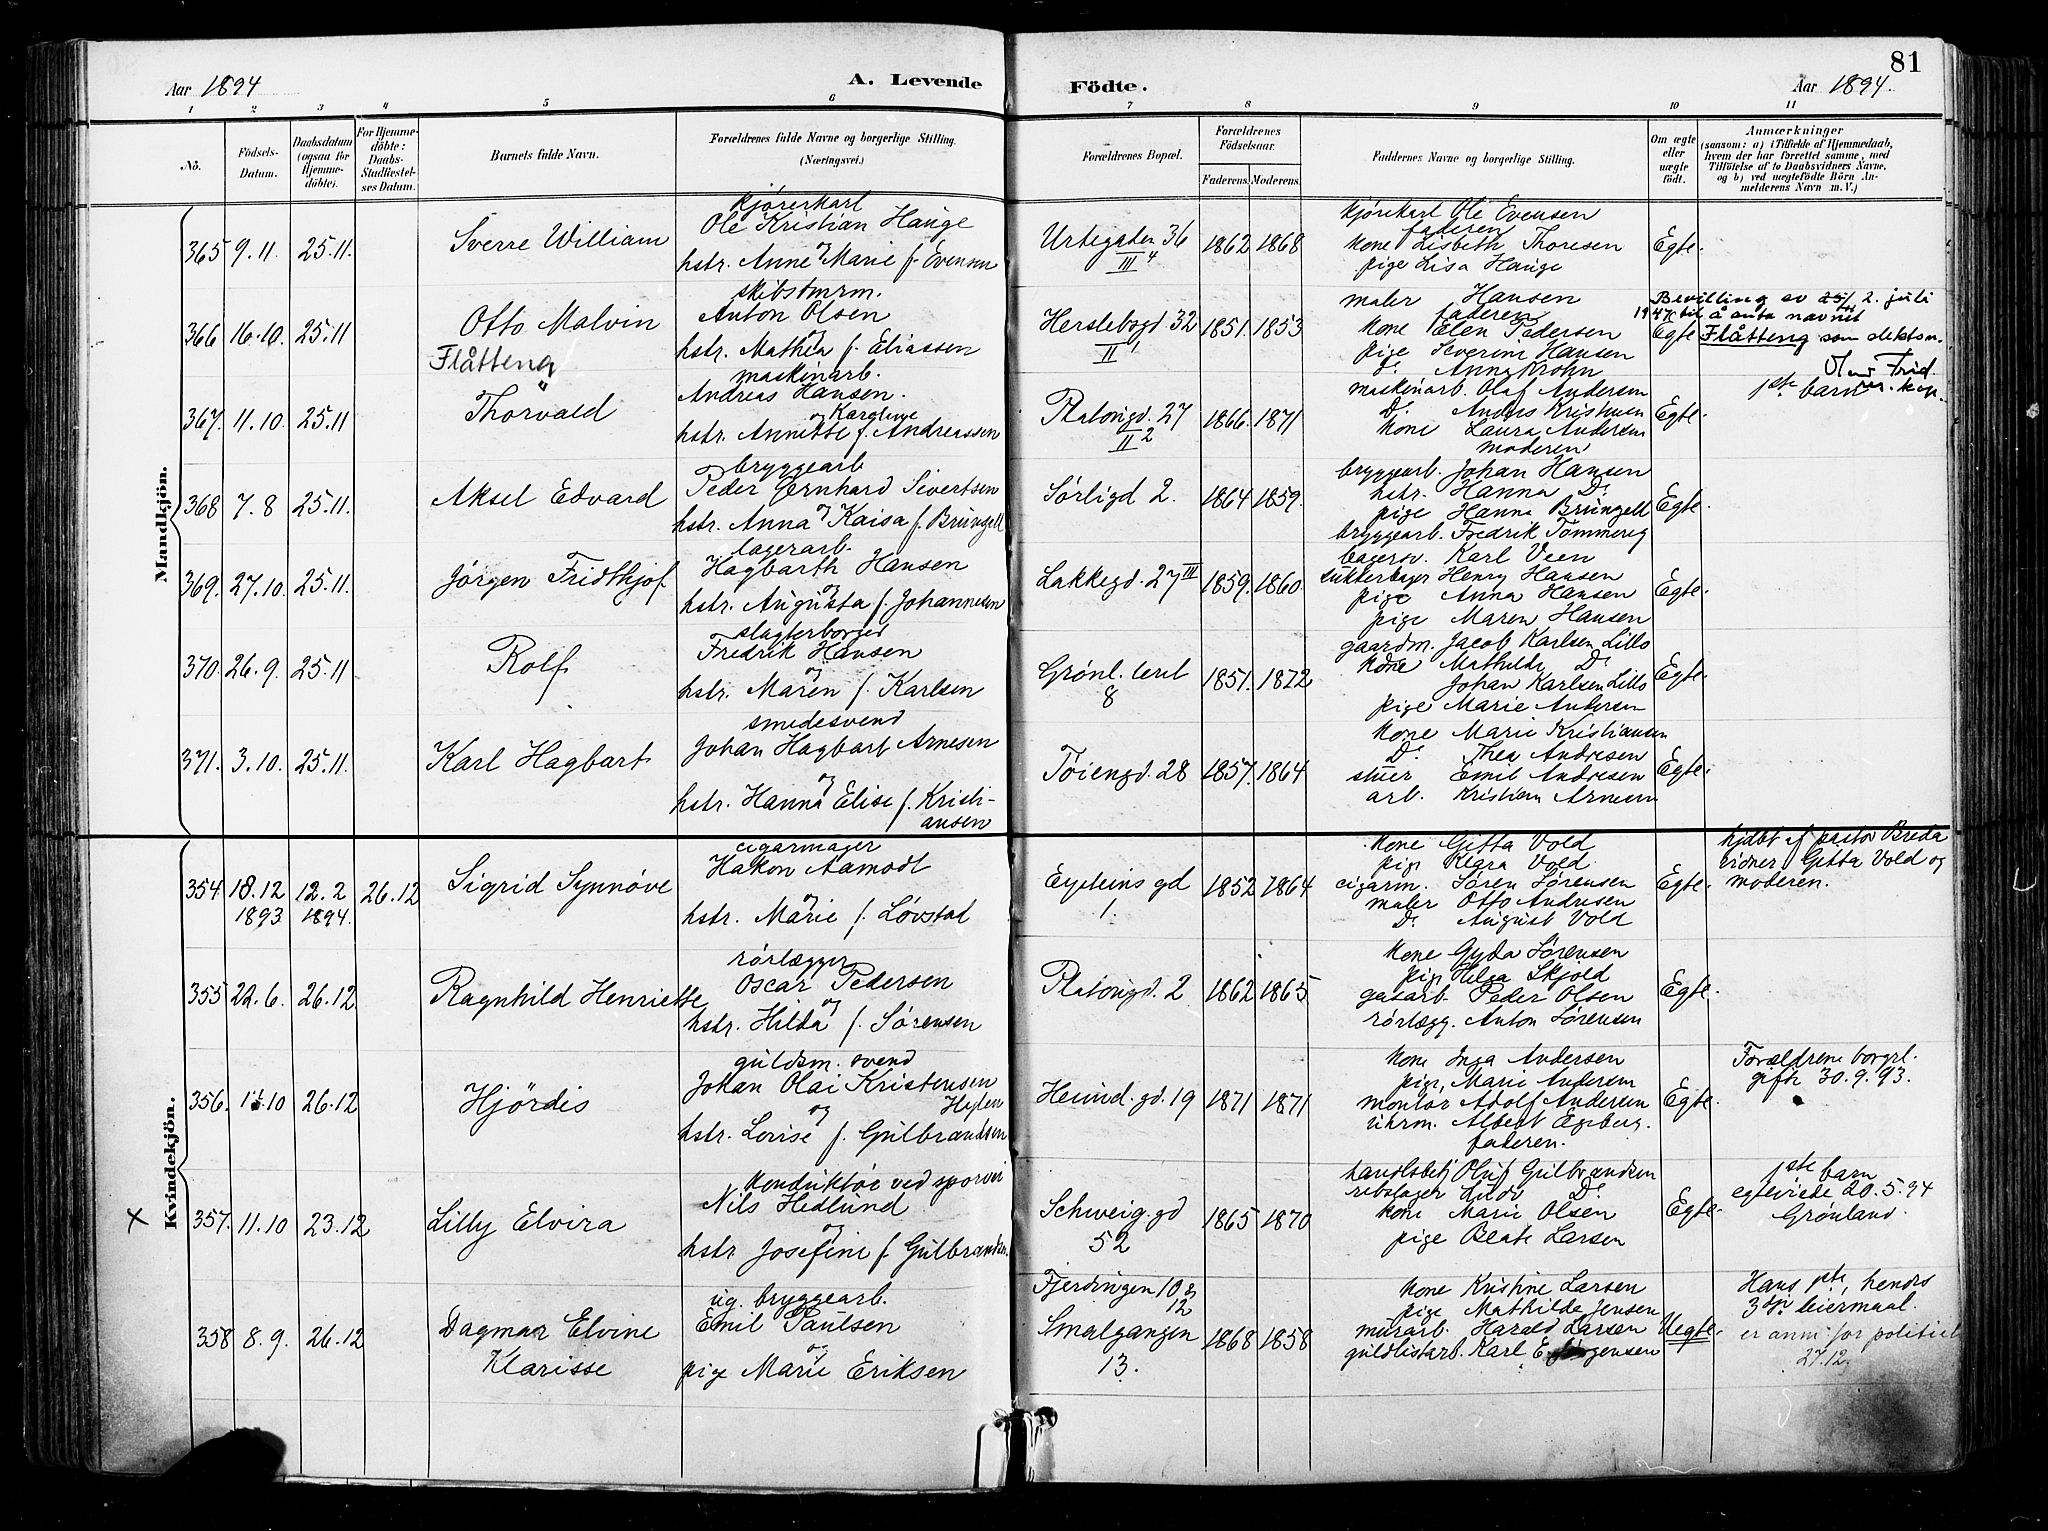 Aar 1894
A. Levende
Födte.
Aar 1894.
81
1 2 3 4 5 6 7 8 9 10 11
No.
Födsels-Datum.
Daabsdatum (ogsaa for Hjemmedöbte).
For Hjemmedöbte: Daabs-Stadfæstelses Datum.
Barnets fulde Navn.
Forældrenes fulde Navne og borgerlige Stilling.
(Næringsvei.)
Forældrenes Bopæl.
Forældrenes Födselsaar.
Faderens. Moderens.
Faddernes Navne og borgerlige Stilling.
Om ægte eller uægte födt.
Anmærkninger
(saasom: a) i Tilfælde af Hjemmedaab,
hvem der har forrettet samme, med
Tilföielse af to Daabsvidners Navne,
og b) ved uægtefödte Börn An-
melderens Navn m. V.)
Mandkjön.
365 9.11. 25.11.
Sverre William
kjørerkarl
Ole Kristian Hauge
og
hstr. Anne Marie f. Evensen
Urtegaden 36
III 4
1862 1868
kjørekarl Ole Evensen
faderen
kone Lisbeth Thoresen
pige Lisa Hauge
Egte.
366 16.10. 25.11
Otto Malvin
Flåtteng
skibstmrm.
Anton Olsen
og
hstr. Mathea f. Eliassen
Herslebsgd 32
II 1
1851. 1853
maler Hansen
faderen
kone Elen Pedersen
pige Severine Hansen
Do. Anna Krohn
Egte
Bevilling av 2. juli
1947 til å anta navnet
Flåtteng som slektsn.
367. 11.10. 25.11
Thorvald
maskinarb.
Andreas Hansen.
og Kargline
hstr. Annette f. Andreassen
Platongd. 27
II 2
1866. 1871
maskinarb. Olaf Andersen
Do. Anders Kristensen
kone Laura Andersen
moderen
Egte.
1ste barn
368 7.8 25.11.
Aksel Edvard
bryggearb
Peder Gernhard Sivertsen
og
hstr. Anna Kaisa f. Brungell
Sørligd 2.
1864 1859.
bryggearb. Johan Hansen
hstr. Hanna Do.
pige Hanna Brungell
bryggearb. Fredrik Tommereg
Egte.
369. 27.10. 25.11.
Jørgen Fridthjof
lagerarb.
Hagbarth Hansen
og
hstr. Augusta f. Johannesen
Lakkegd. 27 III
1859. 1860.
bagersv. Karl Veen
sukkerbager Henry Hansen
pige Anna Hansen
pige Maren Hansen
Egte.
370. 26.9. 25.11
Rolf
slagterborger
Fredrik Hansen
og
hstr. Maren f. Karlsen
Grønl. teret
8
1851. 1872
gaardm. Jacob Karlsen Lillo
kone Mathilde Do.
Johan Karlsen Lillo
pige Marie Andersen
Egte.
371. 3.10. 25.11.
Karl Hagbart
smedesvend
Johan Hagbart Arnesen
og
hstr. Hanna Elise f. Kristi-
ansen
Tøiengd. 28
1857. 1864
kone Marie Kristiansen
Do. Thea Andresen
stuer Emil Andresen
arb. Kristian Arnesen
Egte.
Kvindekjön.
354 18.12 12.2 26.12
1893 1894.
Sigrid Synnøve
cigarmager
Hakon Aamodt
og
hstr. Marie f. Løvstad
Eysteins gd
1.
1852 1864
kone Gitta Vold
pige Klara Vold
cigarm. Søren Sørensen
maler Otto Andresen
Do. August Vold
Egte.
hjdøbt af pastor Breda
vidner Gitta Vold og
moderen.
355 22.6. 26.12.
Ragnhild Henriette
rørlægger
Oscar Pedersen
og
hstr. Hilda f. Sørensen
Platongd. 2
1862 1865
kone Gyda Sørensen
pige Helga Skjold
gasarb. Peder Olsen
rørlægg. Anton Sørensen
Egte.
356. 10 26.12
Hjördis
guldsm. svend
Johan Olai Kristensen
og
hstr. Lovise f. Gulbrandsen
Heimd. gd. 19
1871 1871
kone Inga Andersen
pige, Marie Andersen
montør Adolf Andersen
uhrm. Albert Egeberg.
faderen.
Egte.
Forældrene borgerl.
gifte 30.9.93.
x 357. 11.10 23.12
Lilly Elvira
konduktør ved sporvei
Nils Hedlund
og
hstr Josefine f. Gulbrandsen
Schweig. gd
52
1865 1870
handlsbetj Oluf Gulbrandsen
kone Marie Olsen
pige Beate Larsen
Egte.
1ste barn
egteviede 20.5.94
Grønland.
358 8.9. 26.12
Dagmar Elvine
Klarisse
ug. bryggearb.
Emil Paulsen
og
pige Marie Eriksen
Fjerdingen 10 &
12
Smalgangen
13.
1868 1858
kone Kristine Larsen
pige Mathilda Jensen
murarb. Harald Larsen
guldlistarb. Karl E Jørgensen
Uegte.
Hans 1ste, hendes
3die leiermaal.
er anm for politiet
27.12.